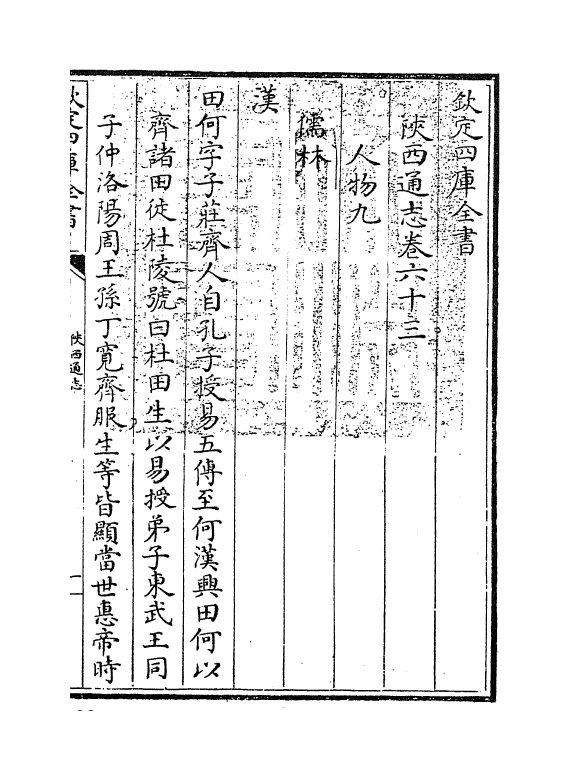 欽定四庫全書
陜西通志卷六十三
人物九
儒林
漢
田何字子莊齊人自孔子授易五傳至何漢興田何以
齊諸田徙杜陵號曰杜田生以易授弟子東武王同
子仲洛陽周王孫丁寛齊服生等皆顯當世惠帝時
欽定四庫全書
陜西通志
一